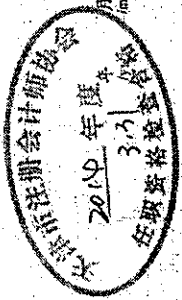 天津市注册会计师协会
2014年度
3.31
任职资格检查合格